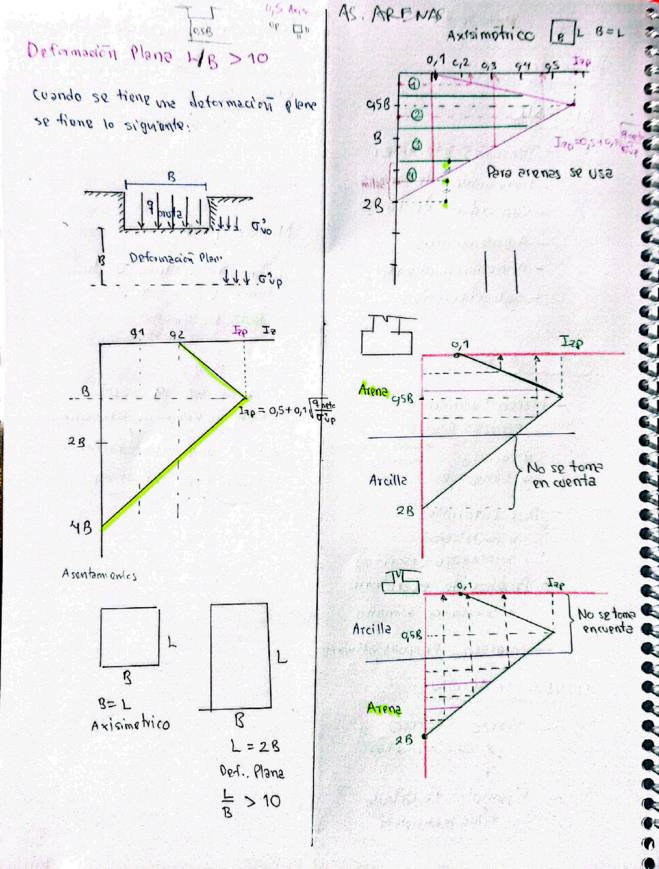 0,5 Axis
0,5B
Deformación Plana L/B > 10
Cuando se tiene una deformación plana
se tiene lo siguiente:
B
q bruta
σ'vo
B
Deformación Plana
σ'vp
0,1 0,2 Izp Iz
B
Izp = 0,5 + 0,1 √(q neta / σ'vp)
2B
4B
Asentamientos
L
B
B = L
Axisimetrico
L
B
L = 2B
Def. Plana
L/B > 10
AS. ARENAS
Axisimétrico B L B = L
0,1 0,2 0,3 0,4 0,5 Izp
①
0,5B
②
B
③
Izp = 0,5 + 0,1 √(q neta / σ'vp)
④
Para arenas se usa
mitad
2B
0,1 Izp
Arena
0,5B
Arcilla
No se toma
en cuenta
2B
0,1 Izp
Arcilla
0,5B
No se toma
en cuenta
Arena
2B